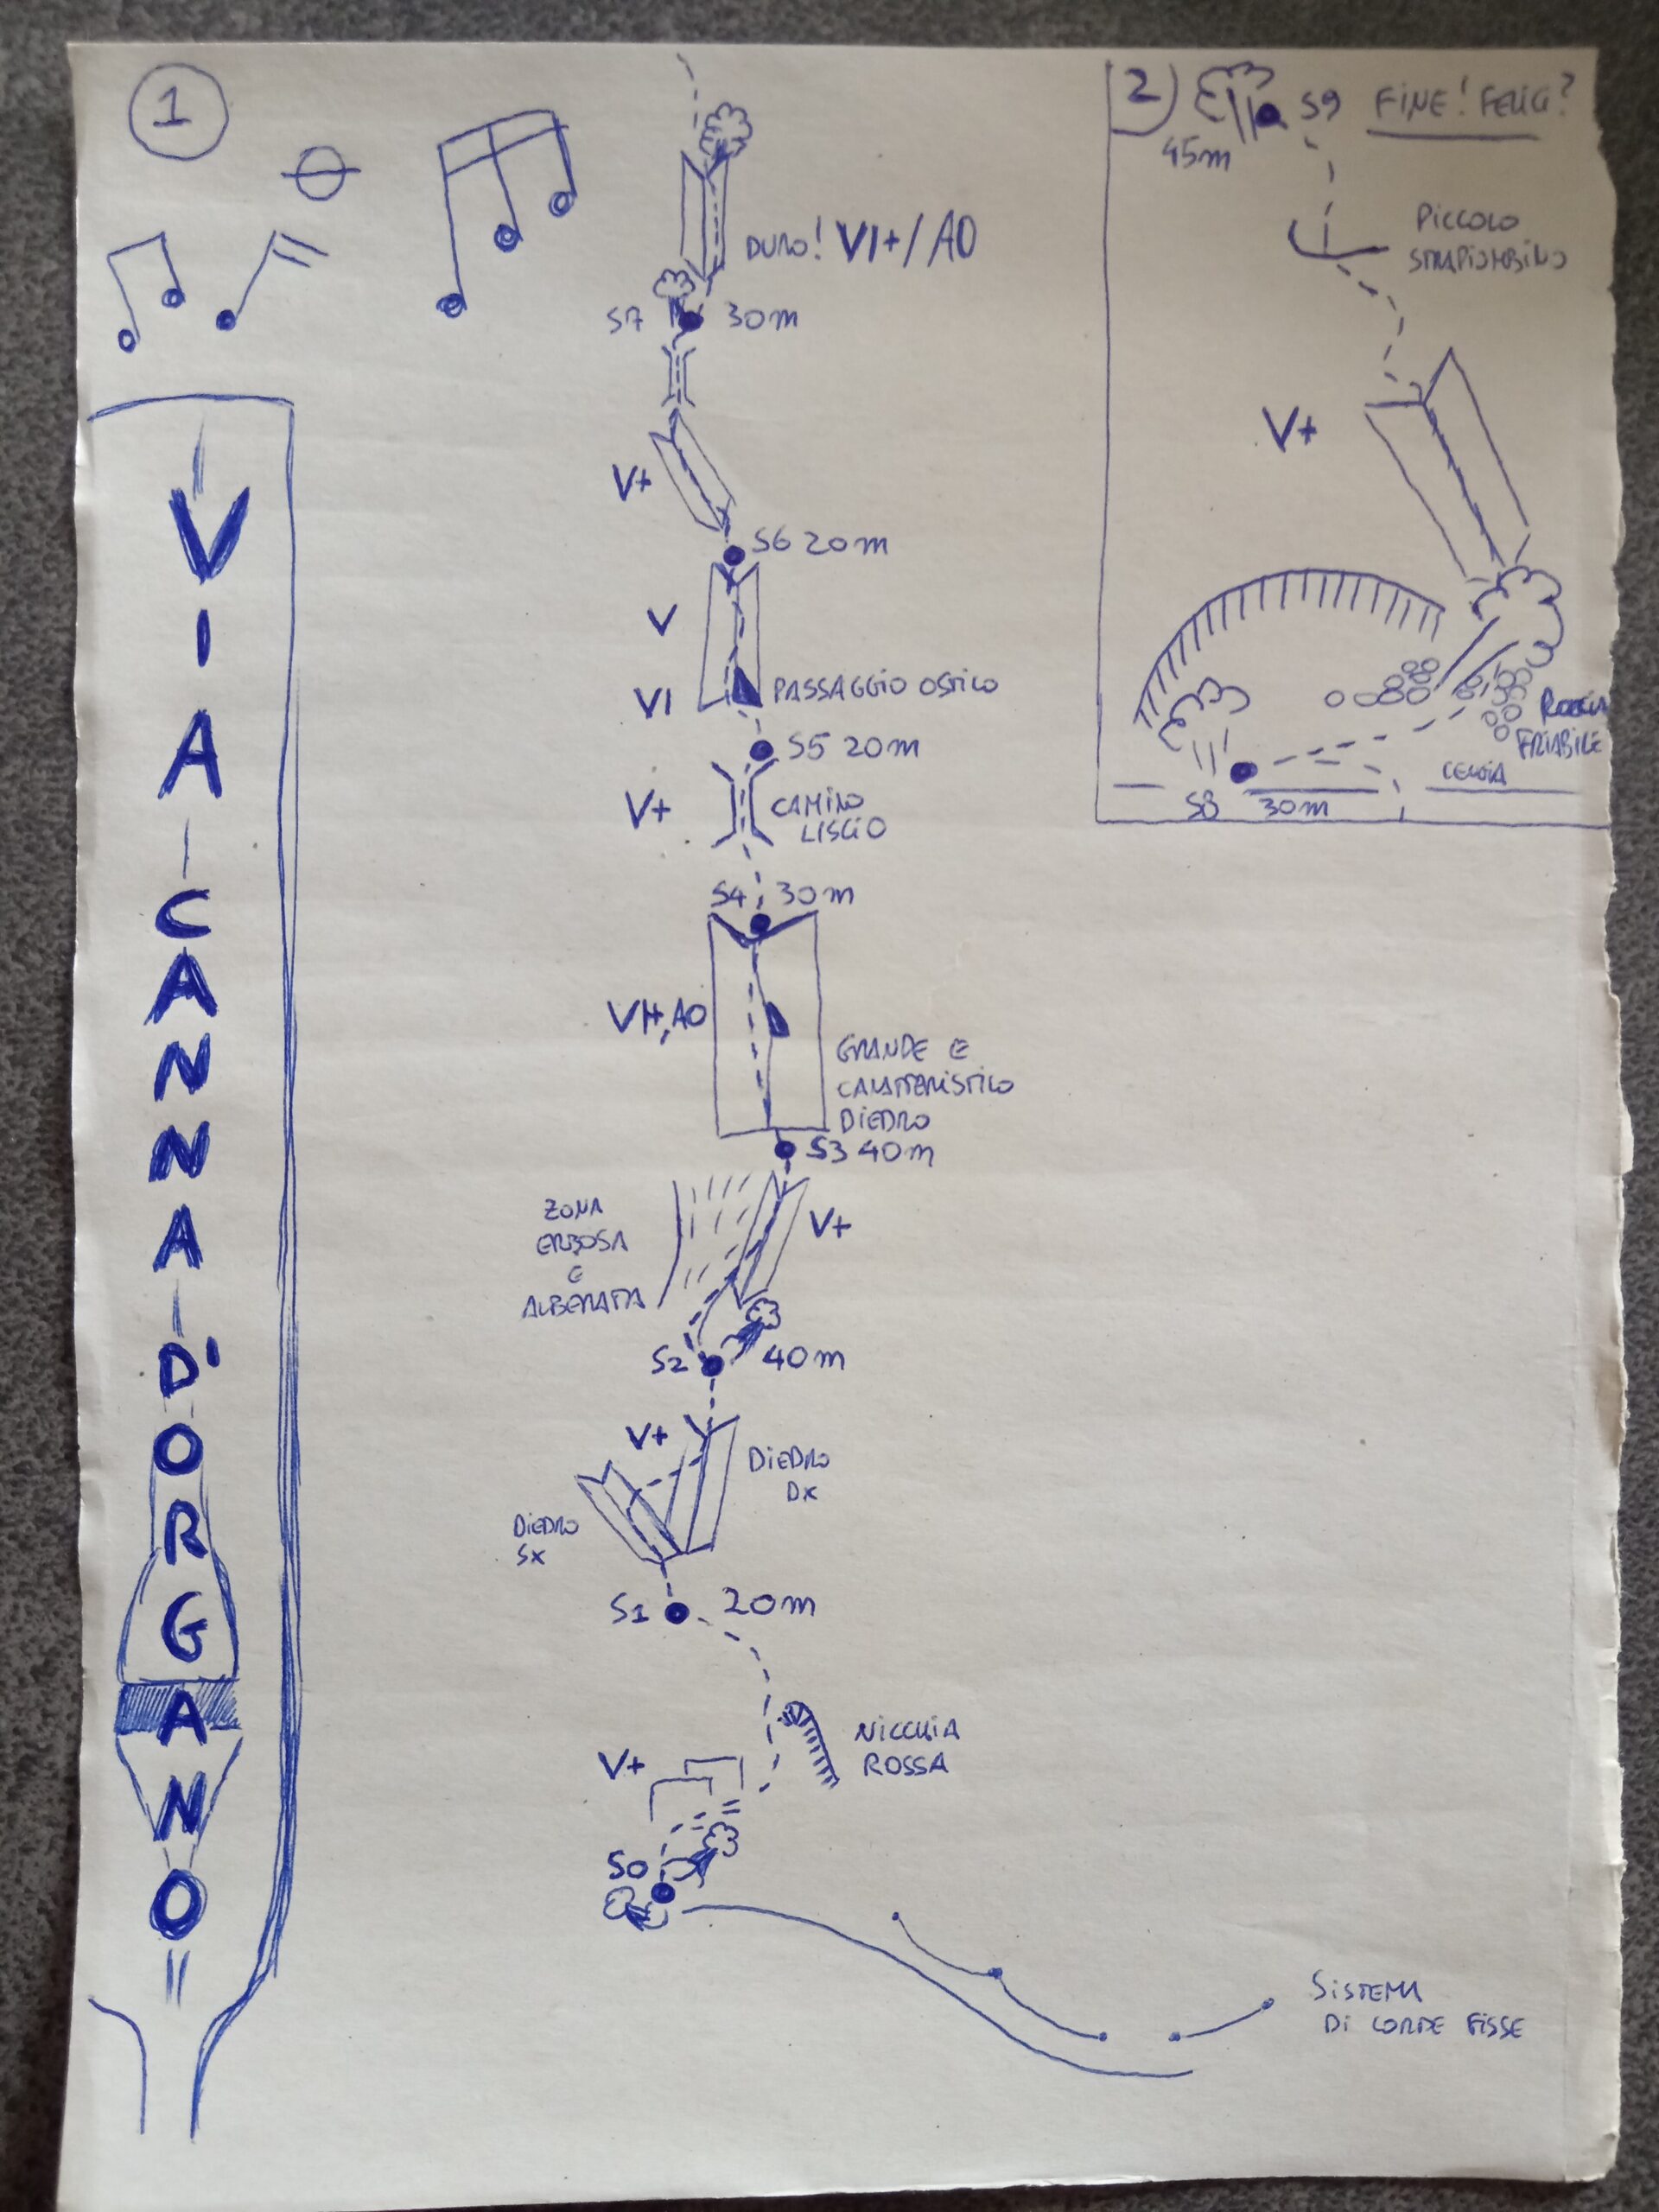 1
VIA CANNA D'ORGANO
DURO! VI+/A0
S7 30m
V+
S6 20m
V
VI PASSAGGIO OSTICO
S5 20m
V+ CAMINO
LISCIO
S4 30m
VI+,A0
GRANDE E
CARATTERISTICO
DIEDRO
S3 40m
ZONA
ERBOSA
E
ALBERATA
V+
S2 40m
V+
DIEDRO
DX
DIEDRO
SX
S1 20m
NICCHIA
ROSSA
V+
S0
SISTEMA
DI CORDE FISSE
2 S9 FINE! FELICI?
45m
PICCOLO
STRAPIOMBINO
V+
ROCCIA
FRIABILE
CENGIA
S8 30m